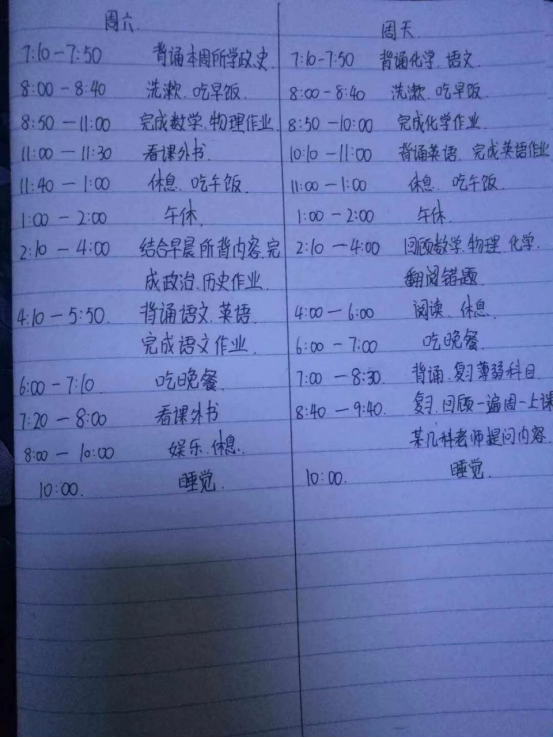 周六
7:10-7:50 背诵本周所学政.史.
8:00-8:40 洗漱.吃早饭.
8:50-11:00 完成数学.物理作业
11:00-11:30 看课外书.
11:40-1:00 休息.吃午饭.
1:00-2:00 午休.
2:10-4:00 结合早晨所背内容.完
成政治.历史作业.
4:10-5:50. 背诵语文.英语.
完成语文作业.
6:00-7:10 吃晚餐.
7:20-8:00 看课外书
8:00-10:00 娱乐.休息.
10:00. 睡觉.
周天.
7:10-7:50 背诵化学.语文.
8:00-8:40 洗漱.吃早餐.
8:50-10:00 完成化学作业.
10:10-11:00 背诵英语.完成英语作业
11:00-1:00 休息.吃午饭.
1:00-2:00 午休.
2:10-4:00 回顾数学.物理.化学.
翻阅错题.
4:00-6:00 阅读.休息.
6:00-7:00 吃晚餐.
7:00-8:30. 背诵.复习薄弱科目
8:40-9:40. 复习.回顾一遍周一上课
某几科老师提问内容.
10:00. 睡觉.